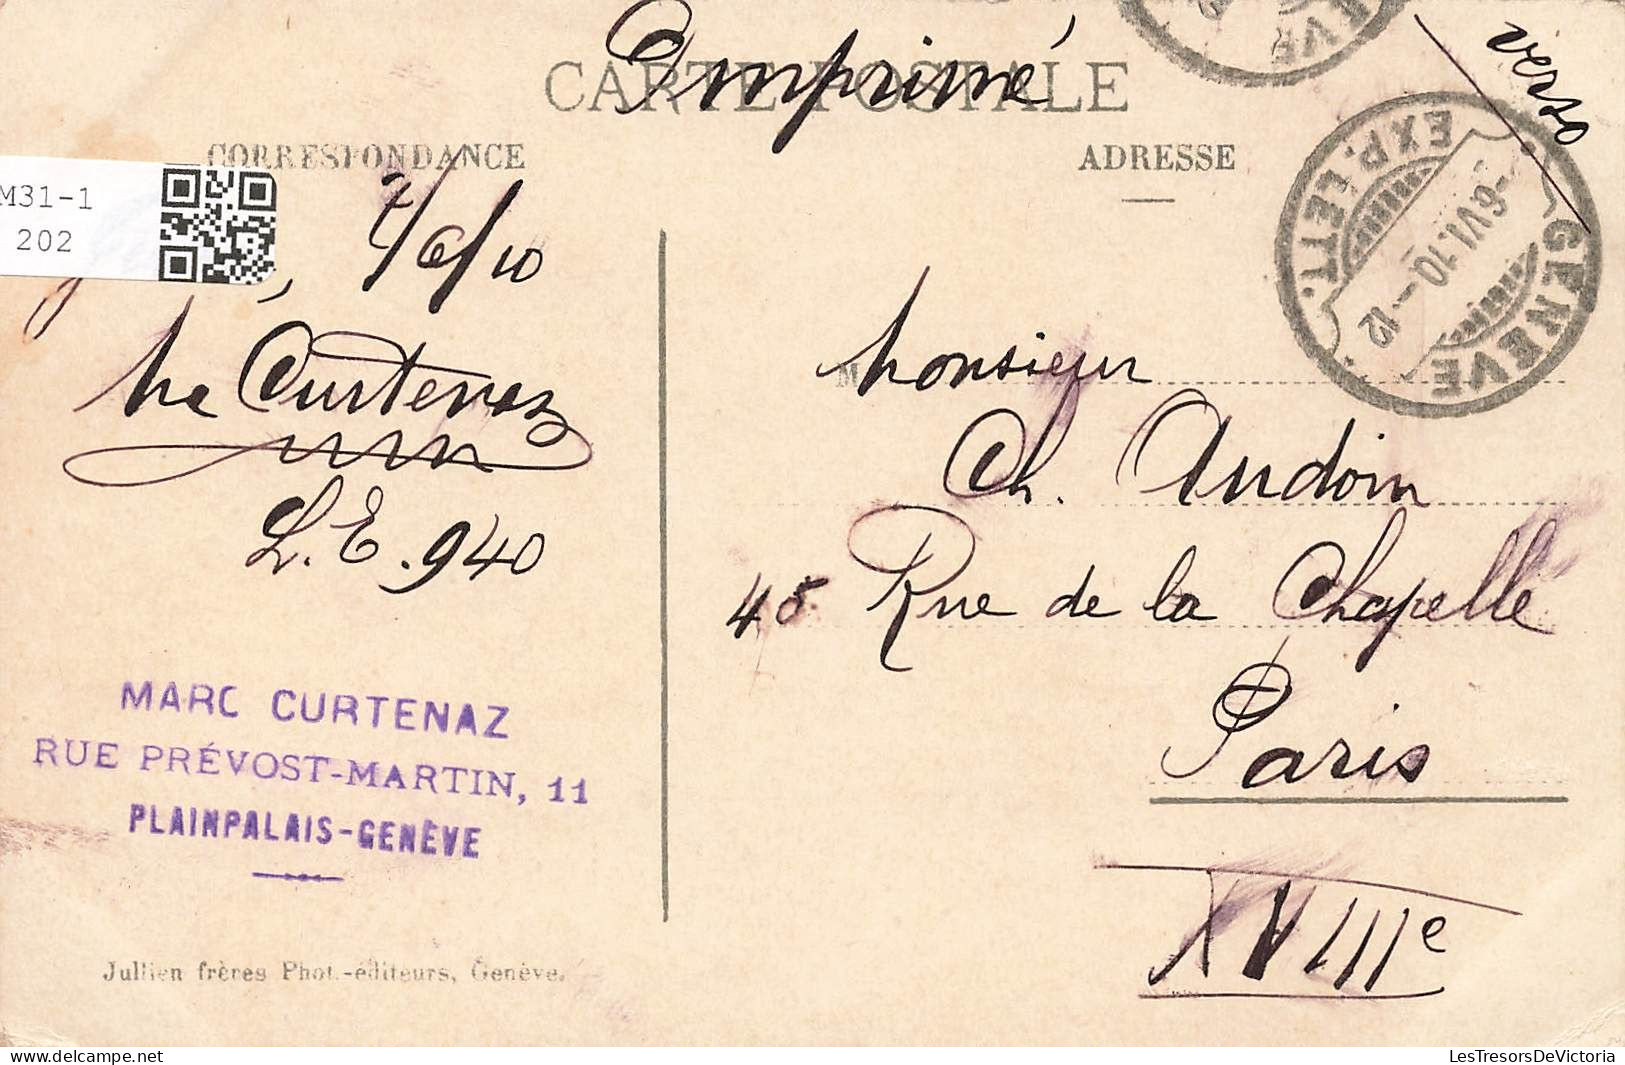 Imprimé
verso
CARTE POSTALE
CORRESPONDANCE
ADRESSE
M31-1
202
/6/10
GENEVE
EXP. LETT.
-6.VI.10.-12
Mc Curtenaz
L.E. 940
Monsieur
Ch. Audoin
45 Rue de la Chapelle
Paris
XVIIIe
MARC CURTENAZ
RUE PRÉVOST-MARTIN, 11
PLAINPALAIS-GENÈVE
Jullien frères Phot.-éditeurs, Genève.
LesTresorsDeVictoria